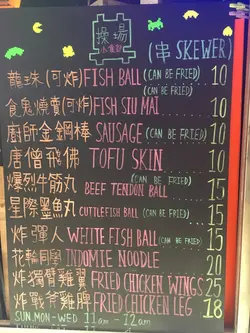 操場
小食部
(串 SKEWER)
龍珠(可炸)FISH BALL (CAN BE FRIED) 10
食鬼燒賣(可炸)FISH SIU MAI (CAN BE FRIED) 10
廚師金鋼棒 SAUSAGE (CAN BE FRIED) 10
唐僧飛佛 TOFU SKIN 10
爆烈牛筋丸 BEEF TENDON BALL (CAN BE FRIED) 15
星際墨魚丸 CUTTLEFISH BALL (CAN BE FRIED) 15
炸彈人 WHITE FISH BALL (CAN BE FRIED) 15
花輪同學 INDOMIE NOODLE 20
炸獨臂雞翼 FRIED CHICKEN WINGS 25
炸戰斧雞髀 FRIED CHICKEN LEG 18
SUN.MON-WED 11am - 12am